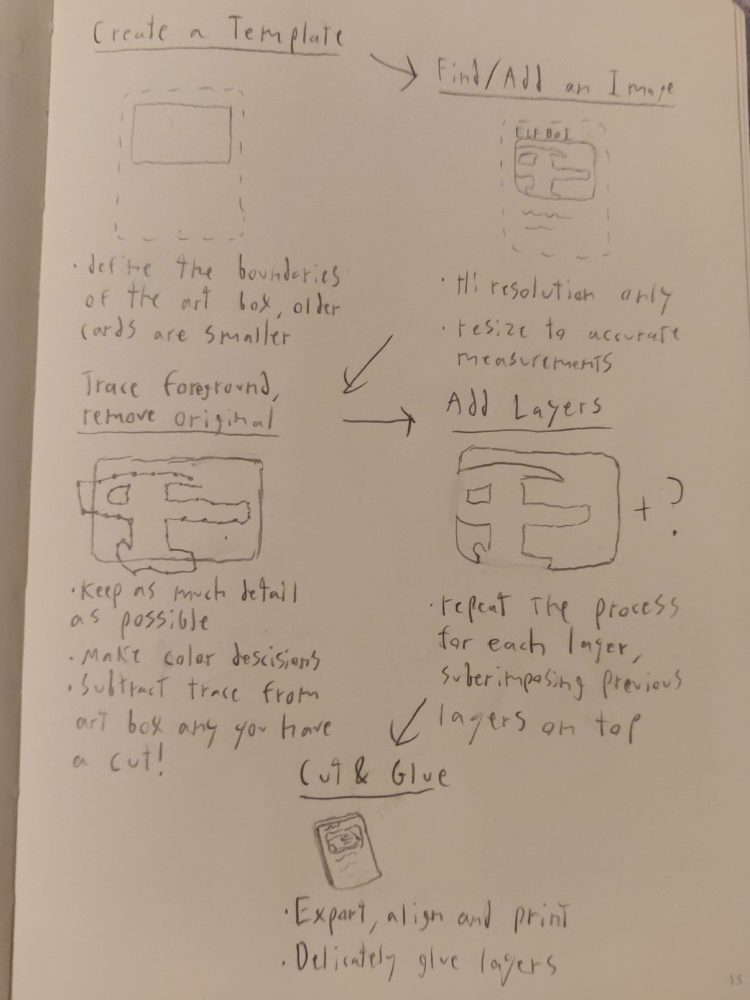 Create a Template
Find/Add an Image
ELF BOI
· define the boundaries
of the art box, older
cards are smaller
· Hi resolution only
· resize to accurate
measurements
Trace foreground,
remove original
Add Layers
+ ?
· Keep as much detail
as possible
· Make color descisions
· Subtract trace from
art box any you have
a cut!
· repeat the process
for each layer,
suberimposing previous
layers on top
Cut & Glue
· Export, align and print
· Delicately glue layers
15